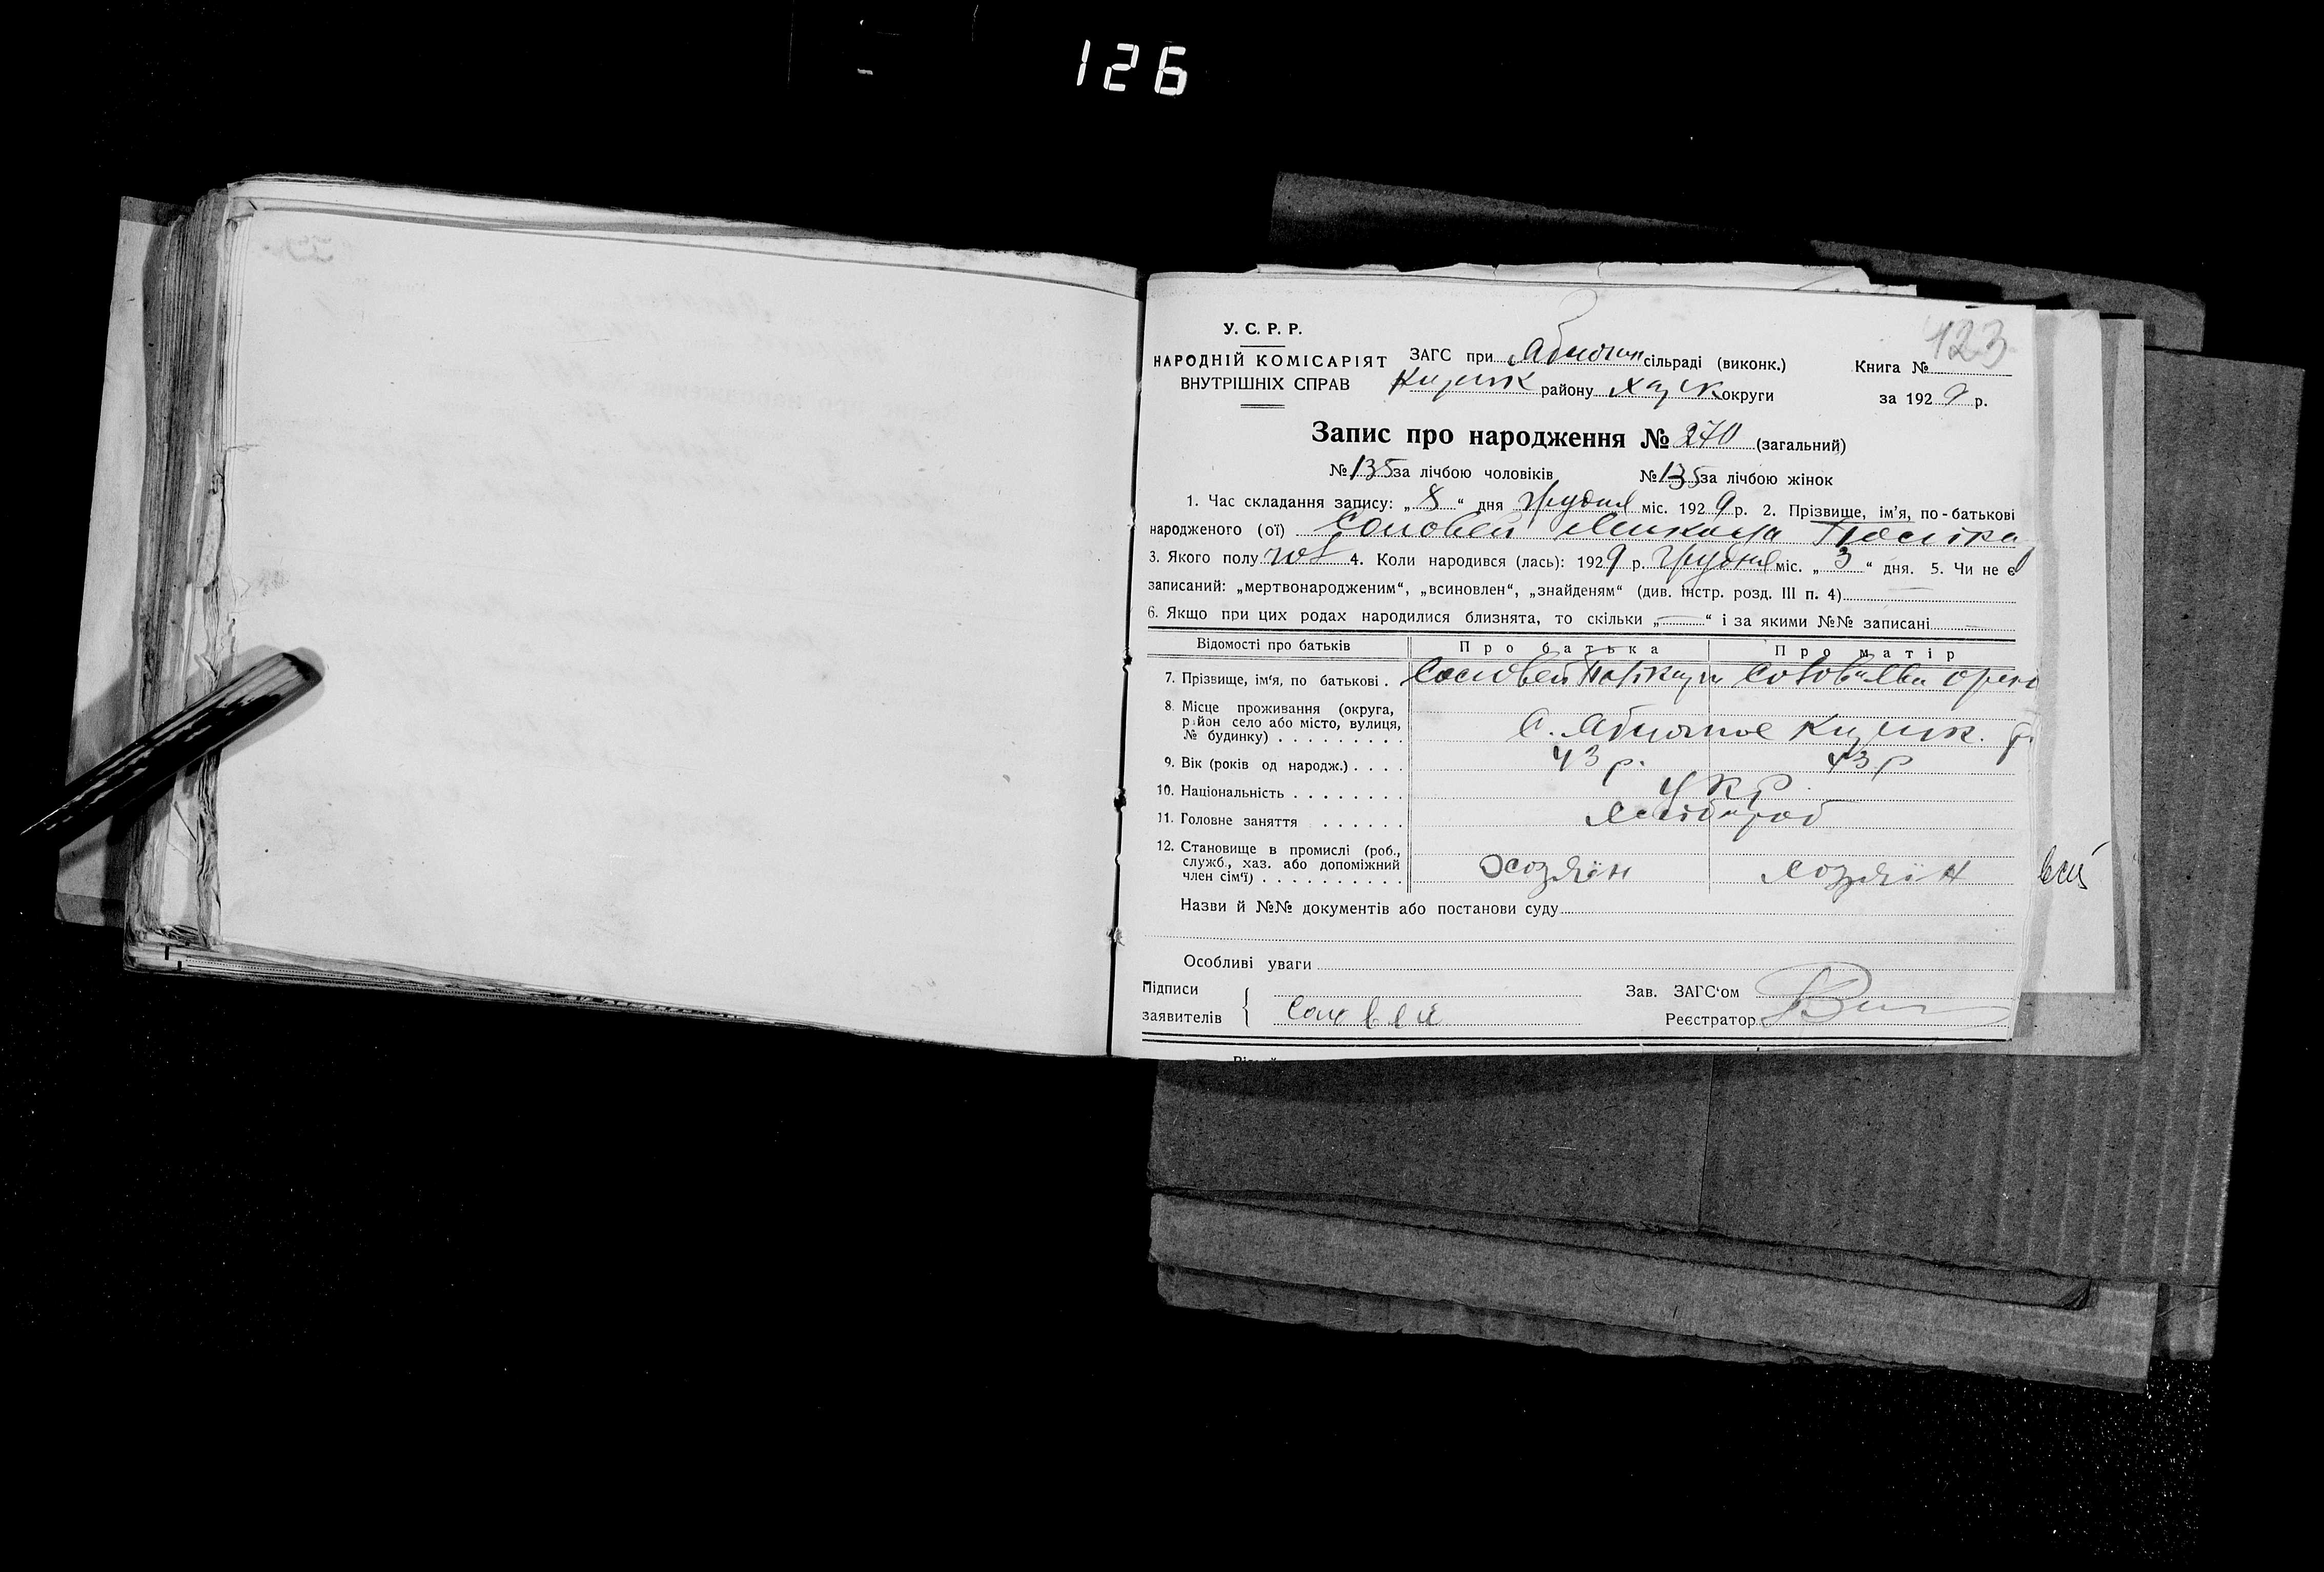 126
423
У. С. Р. Р.
НАРОДНІЙ КОМІСАРІЯТ
ВНУТРІШНІХ СПРАВ
ЗАГС при сільраді (виконк.)
району округи
Книга №
за 1929 р.
Запис про народження № 270 (загальний)
№ 135 за лічбою чоловіків № 135 за лічбою жінок
1. Час складання запису: „8“ дня грудня міс. 1929 р. 2. Прізвище, ім'я, по-батькові
народженого (ої) Соловей Микола
3. Якого полу 4. Коли народився (лась): 1929 р. грудня міс. „3“ дня. 5. Чи не є
записаний: „мертвонародженим“, „всиновлен“, „знайденям“ (див. інстр. розд. III п. 4)
6. Якщо при цих родах народилися близнята, то скільки „—“ і за якими №№ записані —
Відомості про батьків Про батька Про матір
7. Прізвище, ім'я, по батькові . Соловей
8. Місце проживання (округа,
район село або місто, вулиця,
№ будинку) . . . . . . . . .
9. Вік (років од народж.) . . . . 43 р. 43 р
10. Національність . . . . . . . . Укр
11. Головне заняття . . . . . . хлібороб
12. Становище в промислі (роб.,
служб., хаз. або допоміжний
член сім'ї) . . . . . . . . . . . хозяїн хозяїн
Назви й №№ документів або постанови суду
Особливі уваги
Підписи
заявителів
Соловей
Зав. ЗАГС'ом
Реєстратор